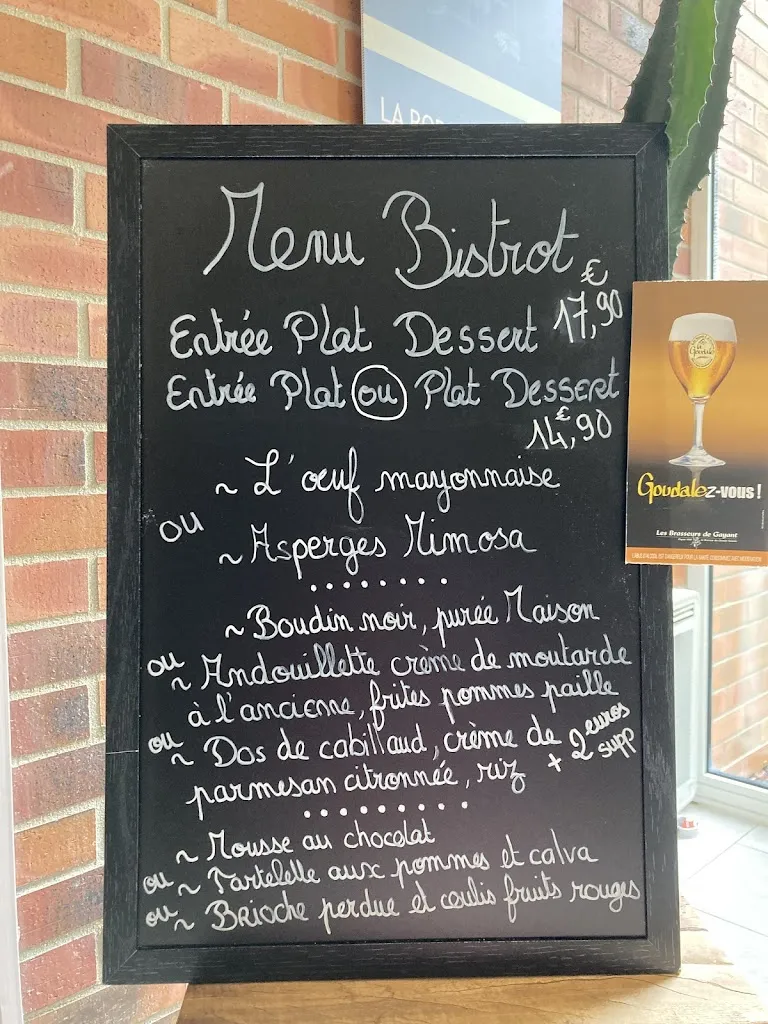 Menu Bistrot
Entrée Plat Dessert 17,90 €
Entrée Plat ou Plat Dessert
14,90 €
~ L'œuf mayonnaise
ou
~ Asperges Mimosa
~ Boudin noir, purée Maison
ou
~ Andouillette crème de moutarde
à l'ancienne, frites pommes paille
ou
~ Dos de cabillaud, crème de
parmesan citronnée, riz
+ 2 euros
supp
~ Mousse au chocolat
ou ~ Tartelette aux pommes et calva
ou ~ Brioche perdue et coulis fruits rouges
Goudale
Goudalez-vous !
Les Brasseurs de Gayant